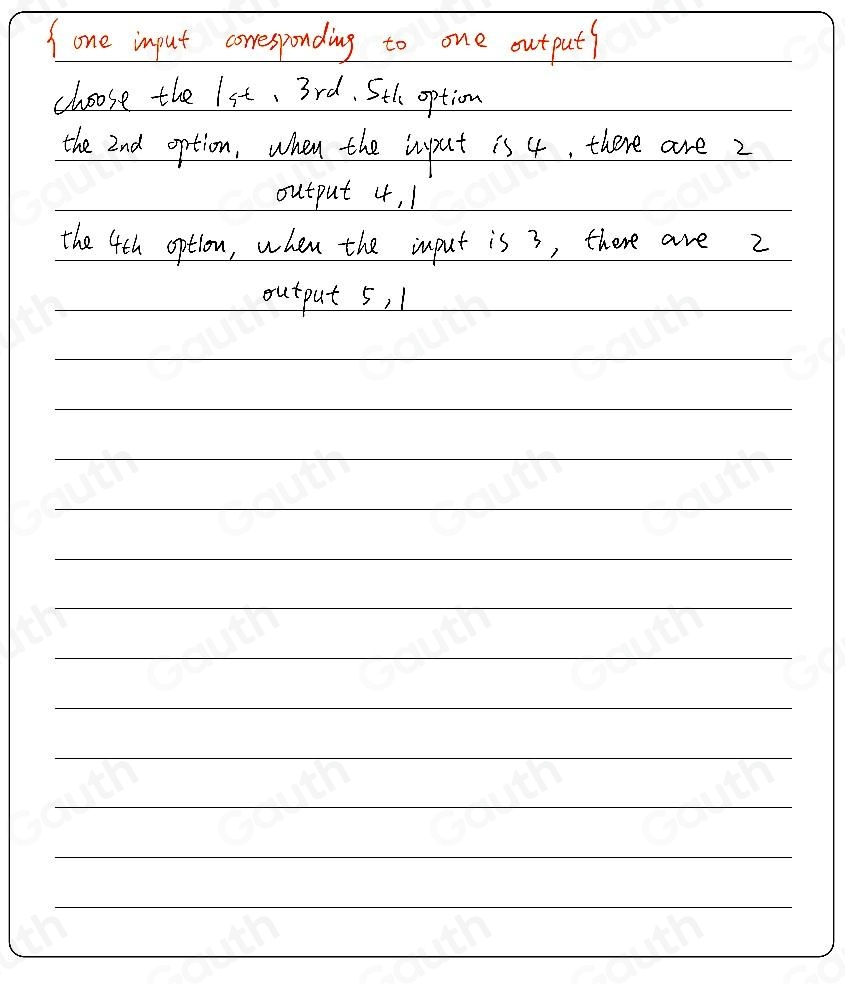 { one input corresponding to one output}
choose the 1st、3rd、5th option
the 2nd option, when the input is 4, there are 2
output 4,1
the 4th option, when the input is 3, there are 2
output 5,1